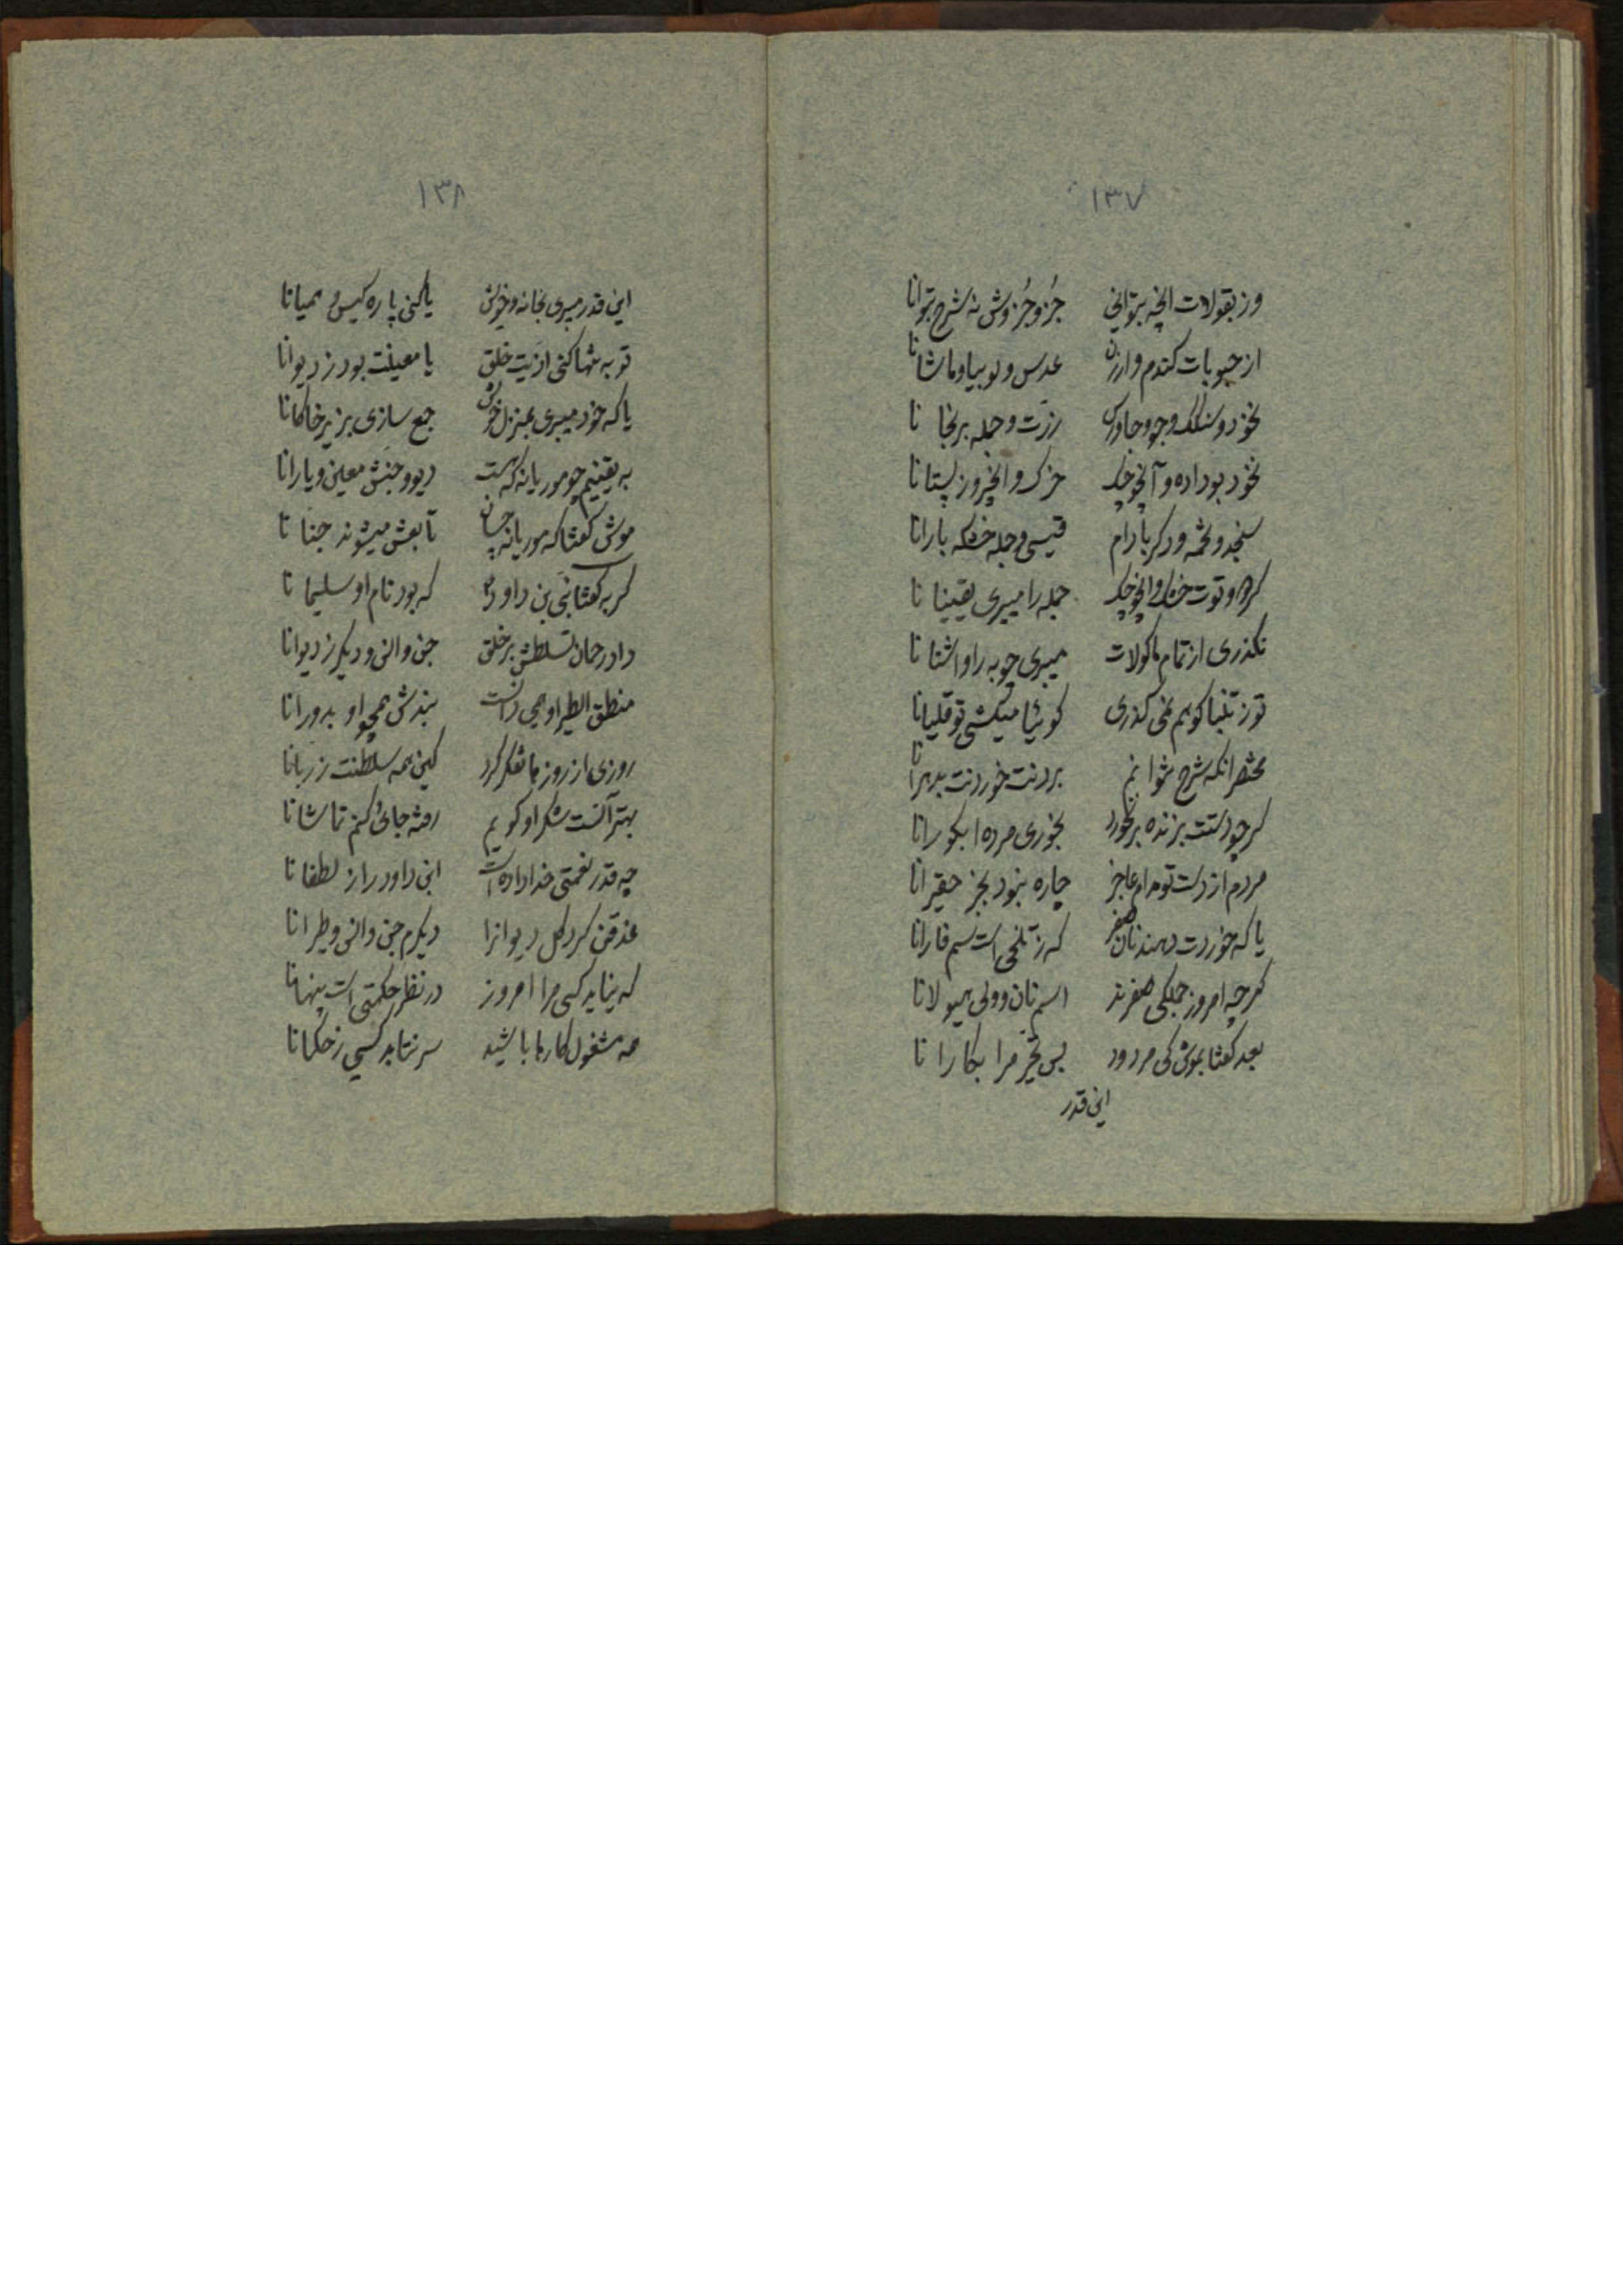 ۱۳۷
وز بقولات آنچه بتوانی جُزو جُزوش نه شرح بتوانا
از حبوبات کندم و ارزن عدس و لوبیا و ماشانا
نخود و سنکک و جو و جاورس رزّت و جمله برنجا نا
نخود بوداده و آلوچک خرک و انجیر وز پستانا
سنجد و تخمه و دکر بادام قیسی و جمله خشکه بارانا
کردو و توت خشک و آلوچک جمله را میبری یقینا نا
نکذری از تمام ماکولات میبری چوبه را و اشنا نا
تو ز تنباکو هم نمی کذری کوئیا میکشی تو قلیانا
مختصر انکه شرح نتوانم بردنت خوردنت بدهرانا
کر چو دستت بزنده بر نخورد بخوری مرده ا بکورانا
مردم از دست تو مدام عاجز چاره نبود بجز حقیرانا
یا که خوردت دهند نان صفر که ز تلخی است سم فارانا
کرچه امروز جملکی صفرند اسم نان و ولی هیولانا
بعد کفتا بموش کی مردود بس تحیر مرا بکارا نا
این قدر
۱۳۸
این قدر میبری بخانه و خویش یا کنی پاره کیس و همیانا
تو به تنها کنی اذیت خلق یا معینت بود ز دیوانا
یا که خود میبری بمنزل خویش جمع سازی بزیر خاکانا
به یقینیم چو موریانه که هست دیو و جنش معین و یارانا
موش کفتا که موریانه چسان تابعش میشوند جنا نا
کربه کفتا نبی بن داود که بود نام او سلیما نا
داد رحمان تسلطش بر خلق جن و انس و دیکر ز دیوانا
منطق الطیر او همی دانست نبدش همچو او بدورانا
روزی از روزها تفکر کرد کین همه سلطنت ز ربانا
بهتر آنست شکر او کویم رفته جائی کنم تماشانا
چه قدر نعمتی خدا داده است ابن داود را ز لطفانا
غدقن کرد کل دیوانرا دیکرم جن و انس و طیرانا
که نیاید کسی مرا امروز در نظر حکمتی است پنهانا
همه مشغول کارها باشید سر نتابد کسی ز حکمانا